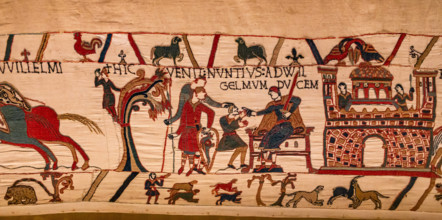 VVILLELMI
†HIC VENIT:NUNTIUS:AD WIL
GELMUM DUCEM